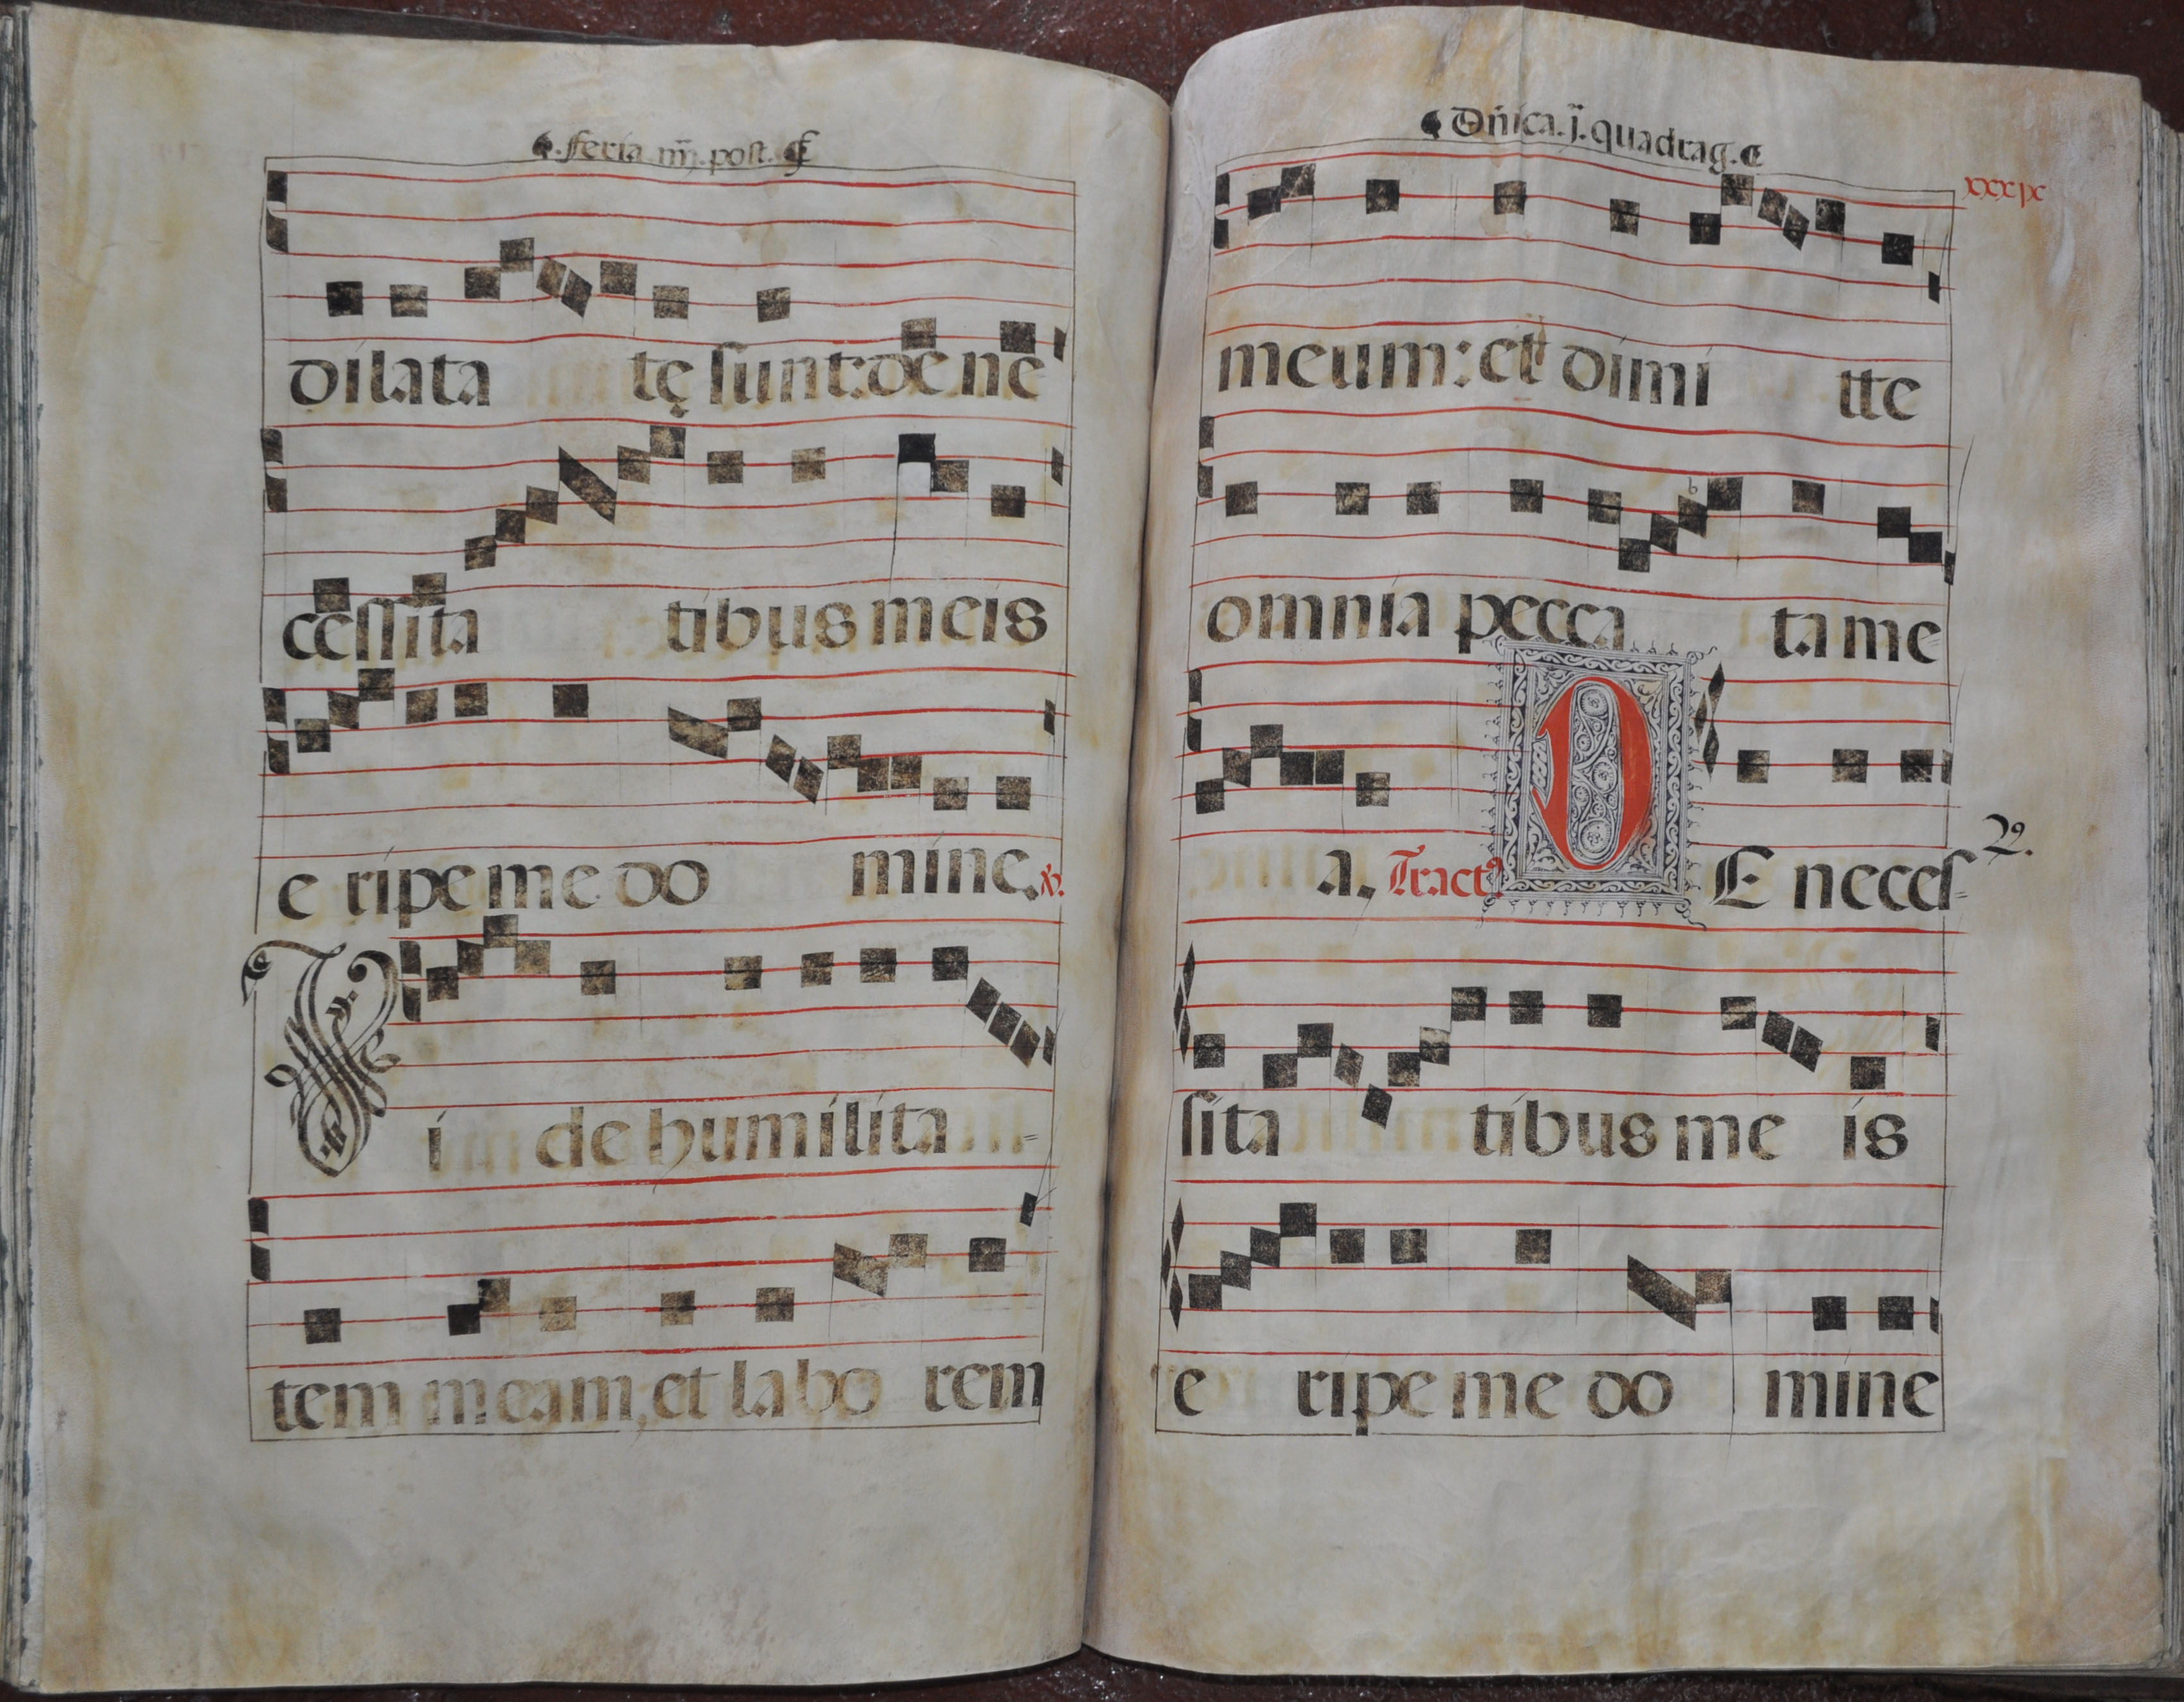 .feria iiij. post.
dilata tę sunt: de ne
cessita tibus meis
e ripe me do mine. ℣.
Vi de humilita-
tem meam, et labo rem
Dñica. j. quadrag.
xxxix
meum: et dimi tte
omnia pecca ta me
a. Tract9 DE neces-
2.9
sita tibus me is
e ripe me do mine